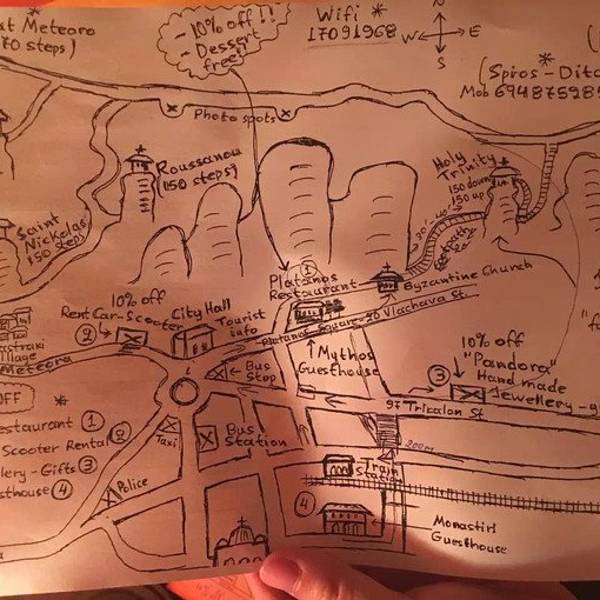 st Meteoro
70 steps)
-10% off!!
- Dessert
free!
Wifi *
17091968
N
W
E
S
*
(Spiros - Dito
Mob 694875985
Photo spots
Roussanou
(150 steps)
Holy
Trinity
150 down
150 up
20'-40'
footpath
Saint
Nickolas
150 steps)
Platanos
Restaurant
1
Byzantine Church
10% off
Rent Car-Scooter
2
City Hall
Tourist
info
Platanos Square - 20 Vlachava St.
astraki
illage
meteora
Mythos
Guesthouse
Bus
Stop
10% off
"Pandora"
3
Hand made
Jewellery - g
97 Trikalon St
OFF
*
estaurant 1
Scooter Rental 2
llery - Gifts 3
sthouse 4
Taxi
Bus
Station
200m
Train
Station
Police
4
Monastiri
Guesthouse